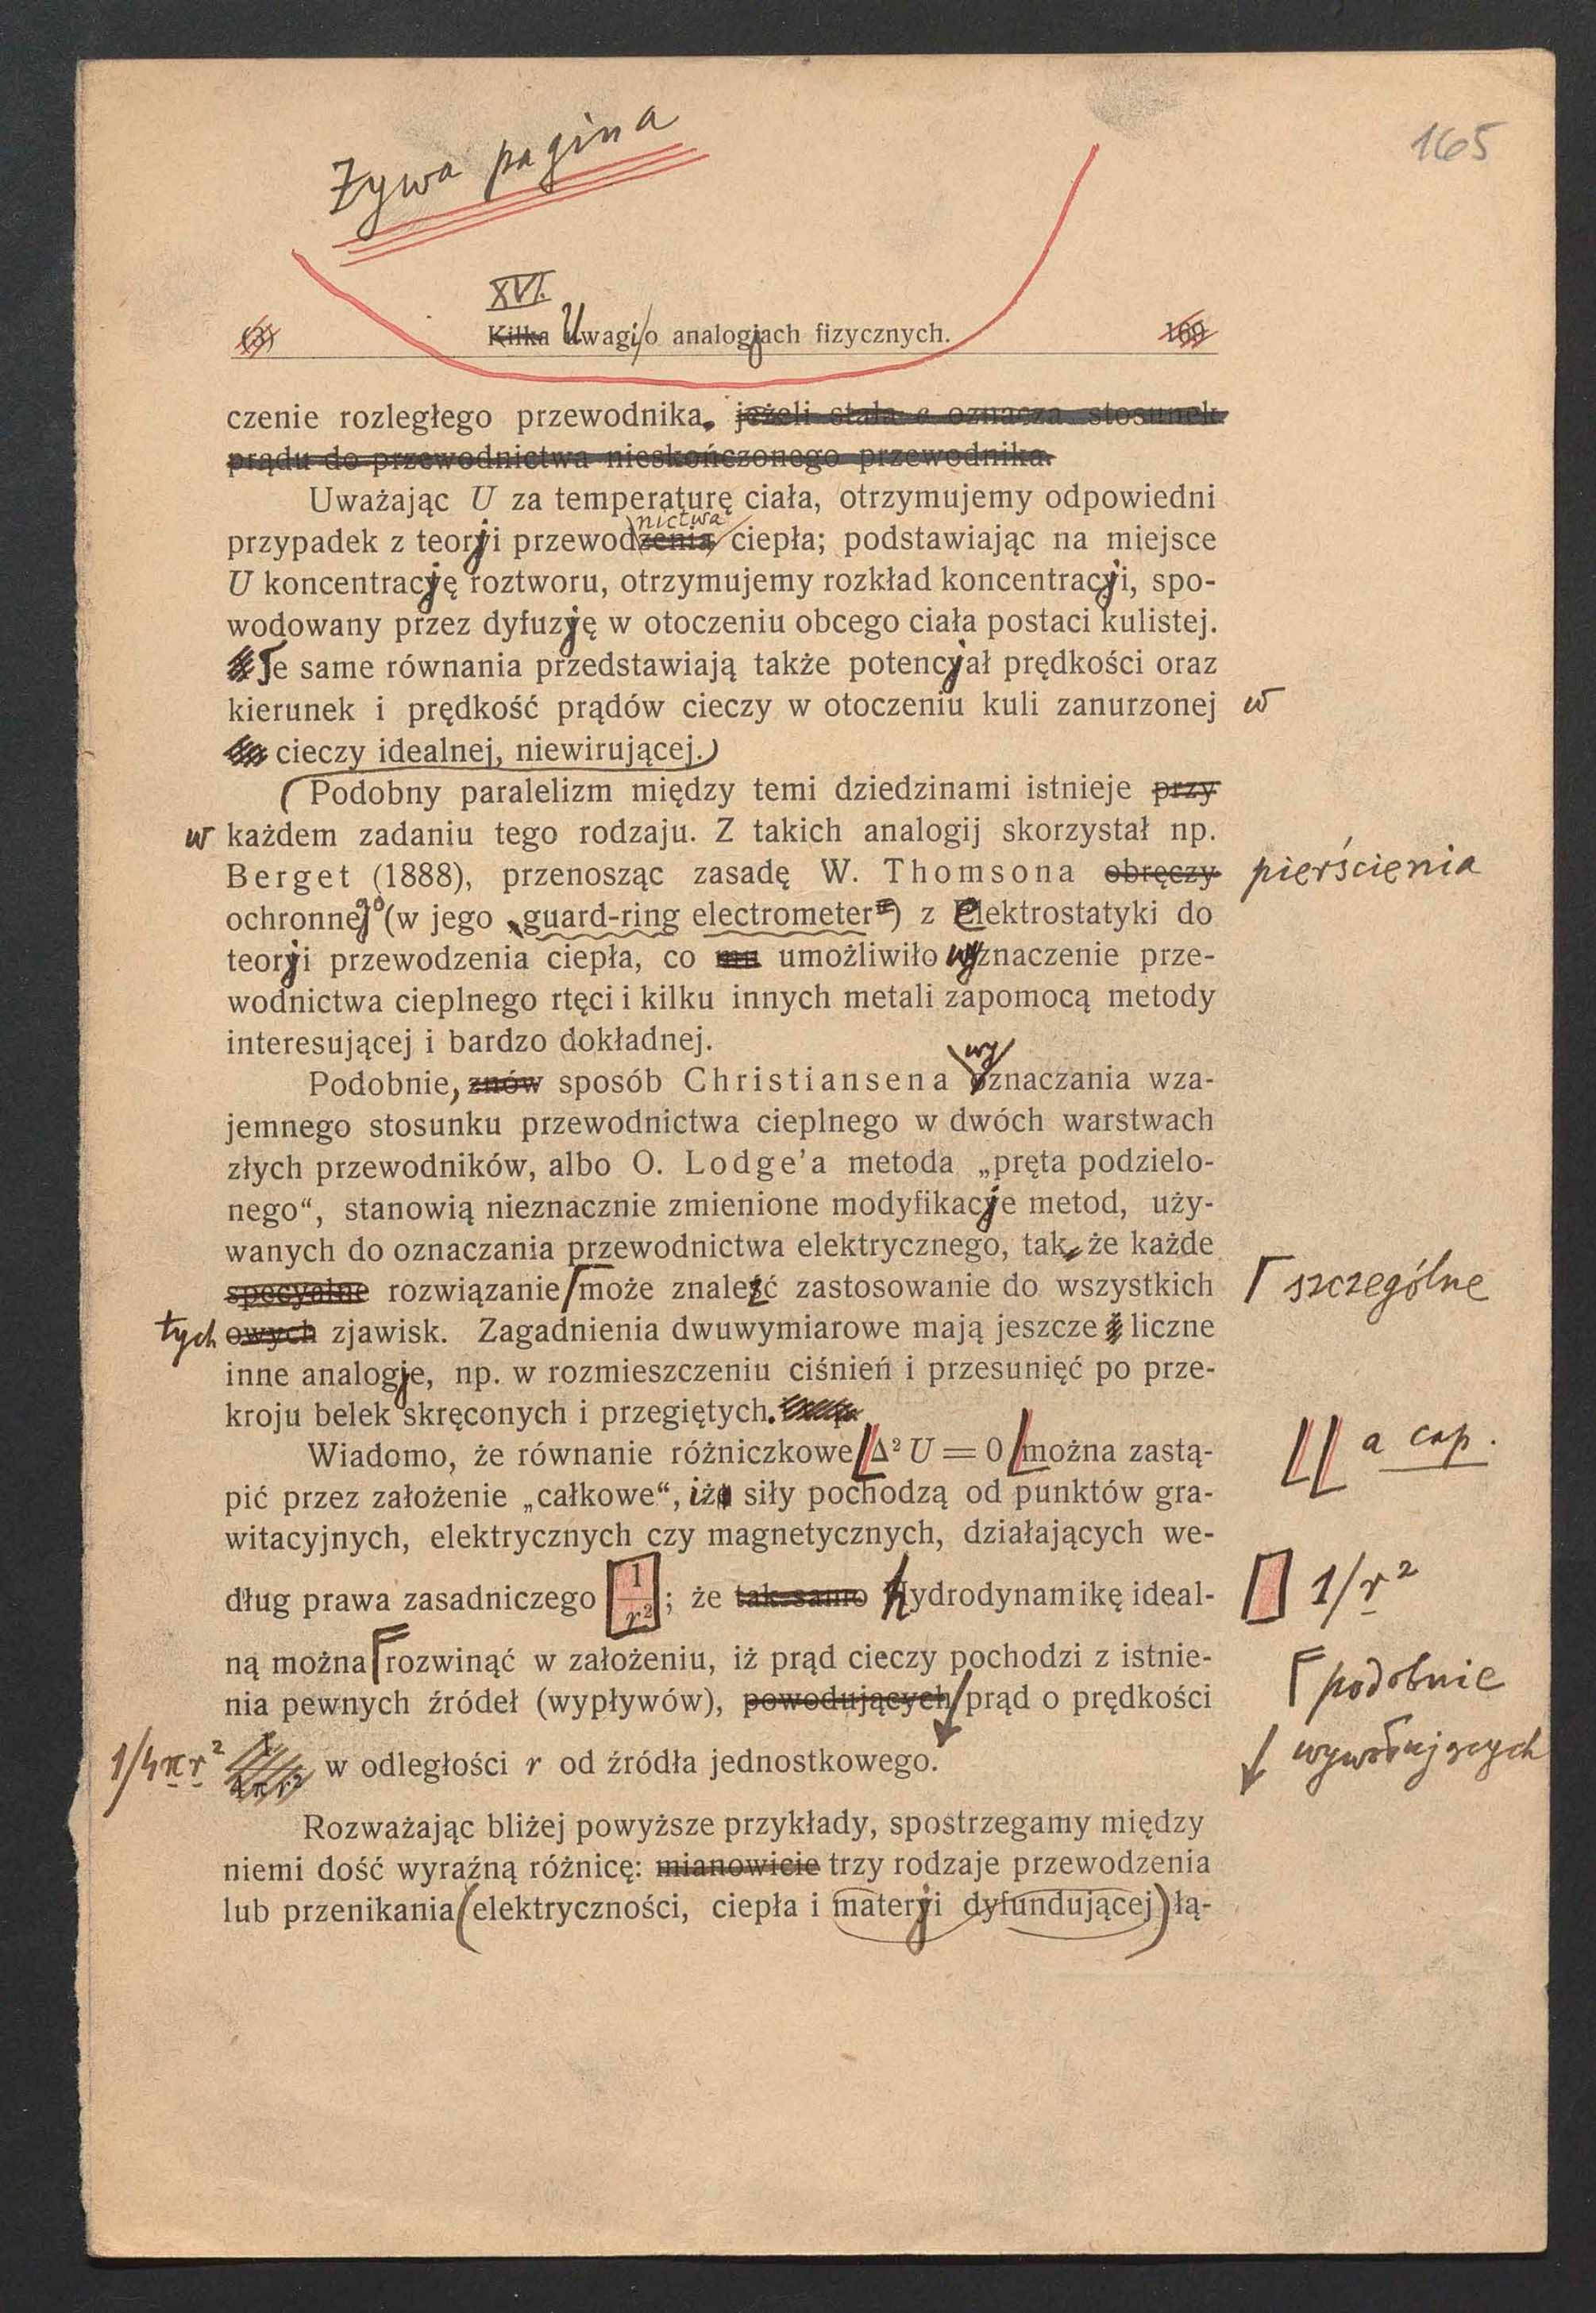 Żywa pagina
165
XVI.
(3) Kilka Uwagi/o analogjach fizycznych. 169
czenie rozległego przewodnika. jeżeli stała c oznacza stosunek
prądu do przewodnictwa nieskończonego przewodnika.
Uważając U za temperaturę ciała, otrzymujemy odpowiedni
nictwa
przypadek z teorji przewodzenia ciepła; podstawiając na miejsce
U koncentrację roztworu, otrzymujemy rozkład koncentracji, spo-
wodowany przez dyfuzję w otoczeniu obcego ciała postaci kulistej.
Te same równania przedstawiają także potencjał prędkości oraz
kierunek i prędkość prądów cieczy w otoczeniu kuli zanurzonej w
cieczy idealnej, niewirującej.
Podobny paralelizm między temi dziedzinami istnieje przy
w każdem zadaniu tego rodzaju. Z takich analogij skorzystał np.
Berget (1888), przenosząc zasadę W. Thomsona obręczy pierścienia
ochronnego (w jego „guard-ring electrometer“) z elektrostatyki do
teorji przewodzenia ciepła, co mu umożliwiło wyznaczenie prze-
wodnictwa cieplnego rtęci i kilku innych metali zapomocą metody
interesującej i bardzo dokładnej.
wy
Podobnie, znów sposób Christiansena oznaczania wza-
jemnego stosunku przewodnictwa cieplnego w dwóch warstwach
złych przewodników, albo O. Lodge’a metoda „pręta podzielo-
nego“, stanowią nieznacznie zmienione modyfikacje metod, uży-
wanych do oznaczania przewodnictwa elektrycznego, tak, że każde
specyalne rozwiązanie może znaleźć zastosowanie do wszystkich szczególne
tych owych zjawisk. Zagadnienia dwuwymiarowe mają jeszcze i liczne
inne analogje, np. w rozmieszczeniu ciśnień i przesunięć po prze-
kroju belek skręconych i przegiętych.
Wiadomo, że równanie różniczkowe Δ² U = 0 można zastą- a cap.
pić przez założenie „całkowe“, iż siły pochodzą od punktów gra-
witacyjnych, elektrycznych czy magnetycznych, działających we-
dług prawa zasadniczego 1/r²; że tak samo hydrodynamikę ideal- 1/r²
ną można rozwinąć w założeniu, iż prąd cieczy pochodzi z istnie- podobnie
nia pewnych źródeł (wypływów), powodujących prąd o prędkości wywołujących
1/4πr² w odległości r od źródła jednostkowego.
Rozważając bliżej powyższe przykłady, spostrzegamy między
niemi dość wyraźną różnicę: mianowicie trzy rodzaje przewodzenia
lub przenikania (elektryczności, ciepła i materji dyfundującej) łą-